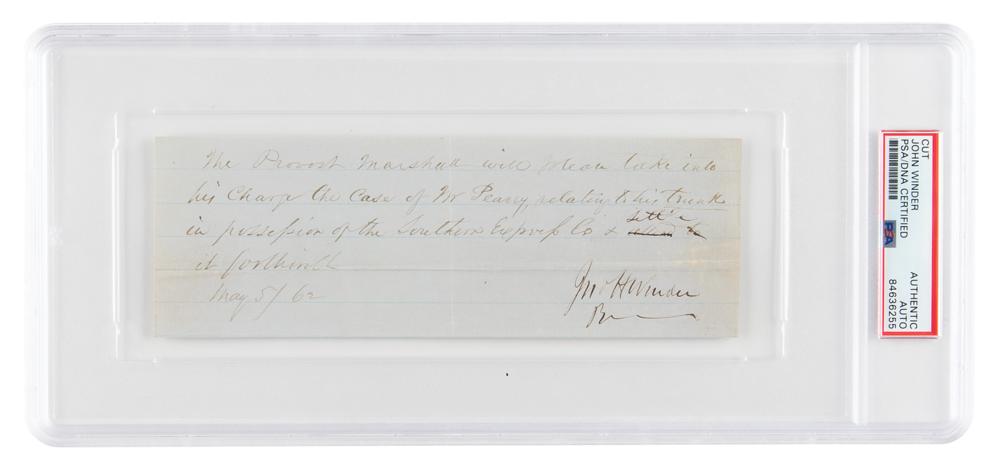 The Provost Marshall will please take into
his Charge the Case of Mr Peary, relating to his trunk
in possession of the Southern Express Co & settle
it forthwith
May 5/62
Jno H Winder
CUT
JOHN WINDER
PSA/DNA CERTIFIED
PSA
AUTHENTIC
AUTO
84636255